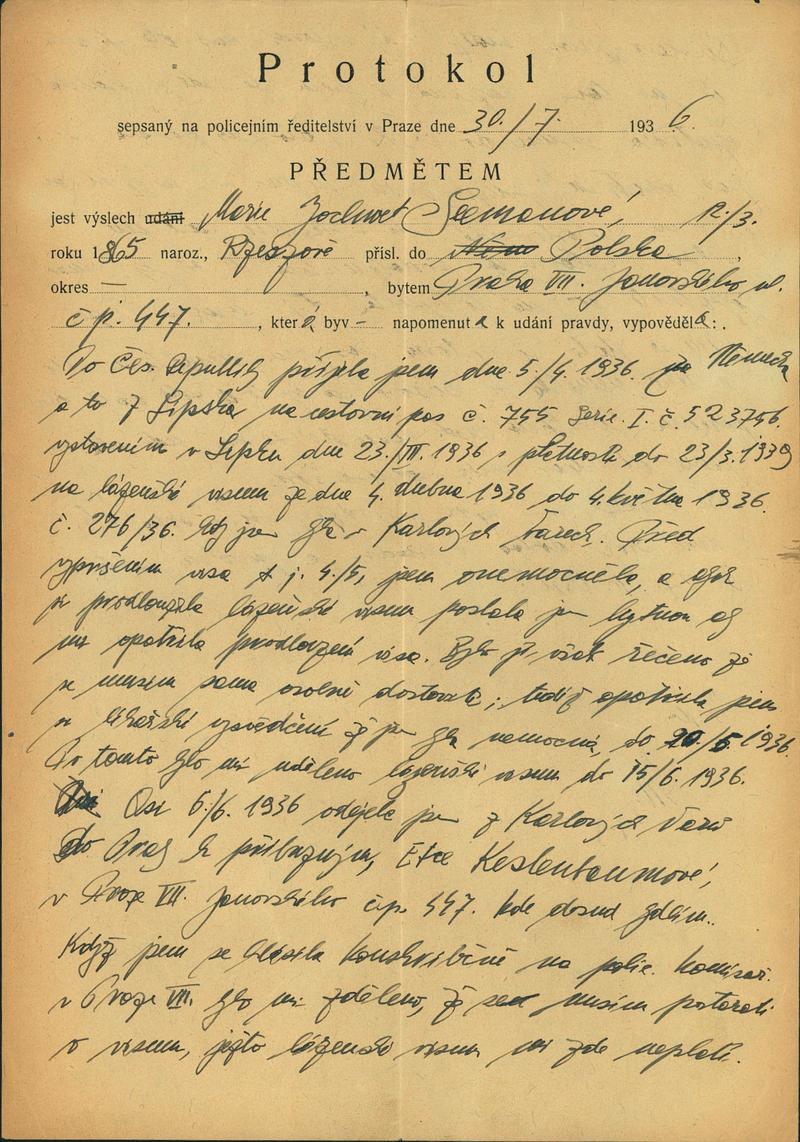 Protokol
sepsaný na policejním ředitelství v Praze dne 30./7. 1936.
PŘEDMĚTEM
jest výslech udání Marie Jochwet Seemanové, 12./3.
roku 1865 naroz., Rzeszově přísl. do Polska,
okres — , bytem Praha VII. Janovského ul.
čp. 447. , která byv — napomenuta k udání pravdy, vypověděla: .
Do Čes. republiky přijela jsem dne 5./4. 1936 Německa
a to z Lipska na cestovní pas č. 755 Serie. I. č. 523756.
vystaveném v Lipsku dne 23./III. 1936 s platností do 23/3. 1939
na lázeňské visum ze dne 4. dubna 1936 do 4. května 1936.
č. 276/36. jsem byla v Karlových Varech. Před
vypršením visa t. j. 4./5, jsem onemocněla, a abych
si prodloužila lázeňské visum poslala jsem aby
mi opatřila prodloužení visa. Bylo jí však řečeno že
se musím sama osobně dostaviti; tudíž opatřila jsem
si lékařské vysvědčení že jsem byla nemocná, do 20/5 1936.
Po tomto bylo mi uděleno lázeňské visum do 15/6. 1936.
Asi 6./6. 1936 odejela jsem z Karlových Varů
do Prahy k příbuzným, Etce Kestenbaumové,
v Praze VII. Janovského čp. 447. kde dosud bydlím.
Když jsem se hlásila konskribčně na polic. komisař.
v Praze VII. bylo mi sděleno, že musím postarati
o visum, ježto lázeňské visum mi zde neplatí.